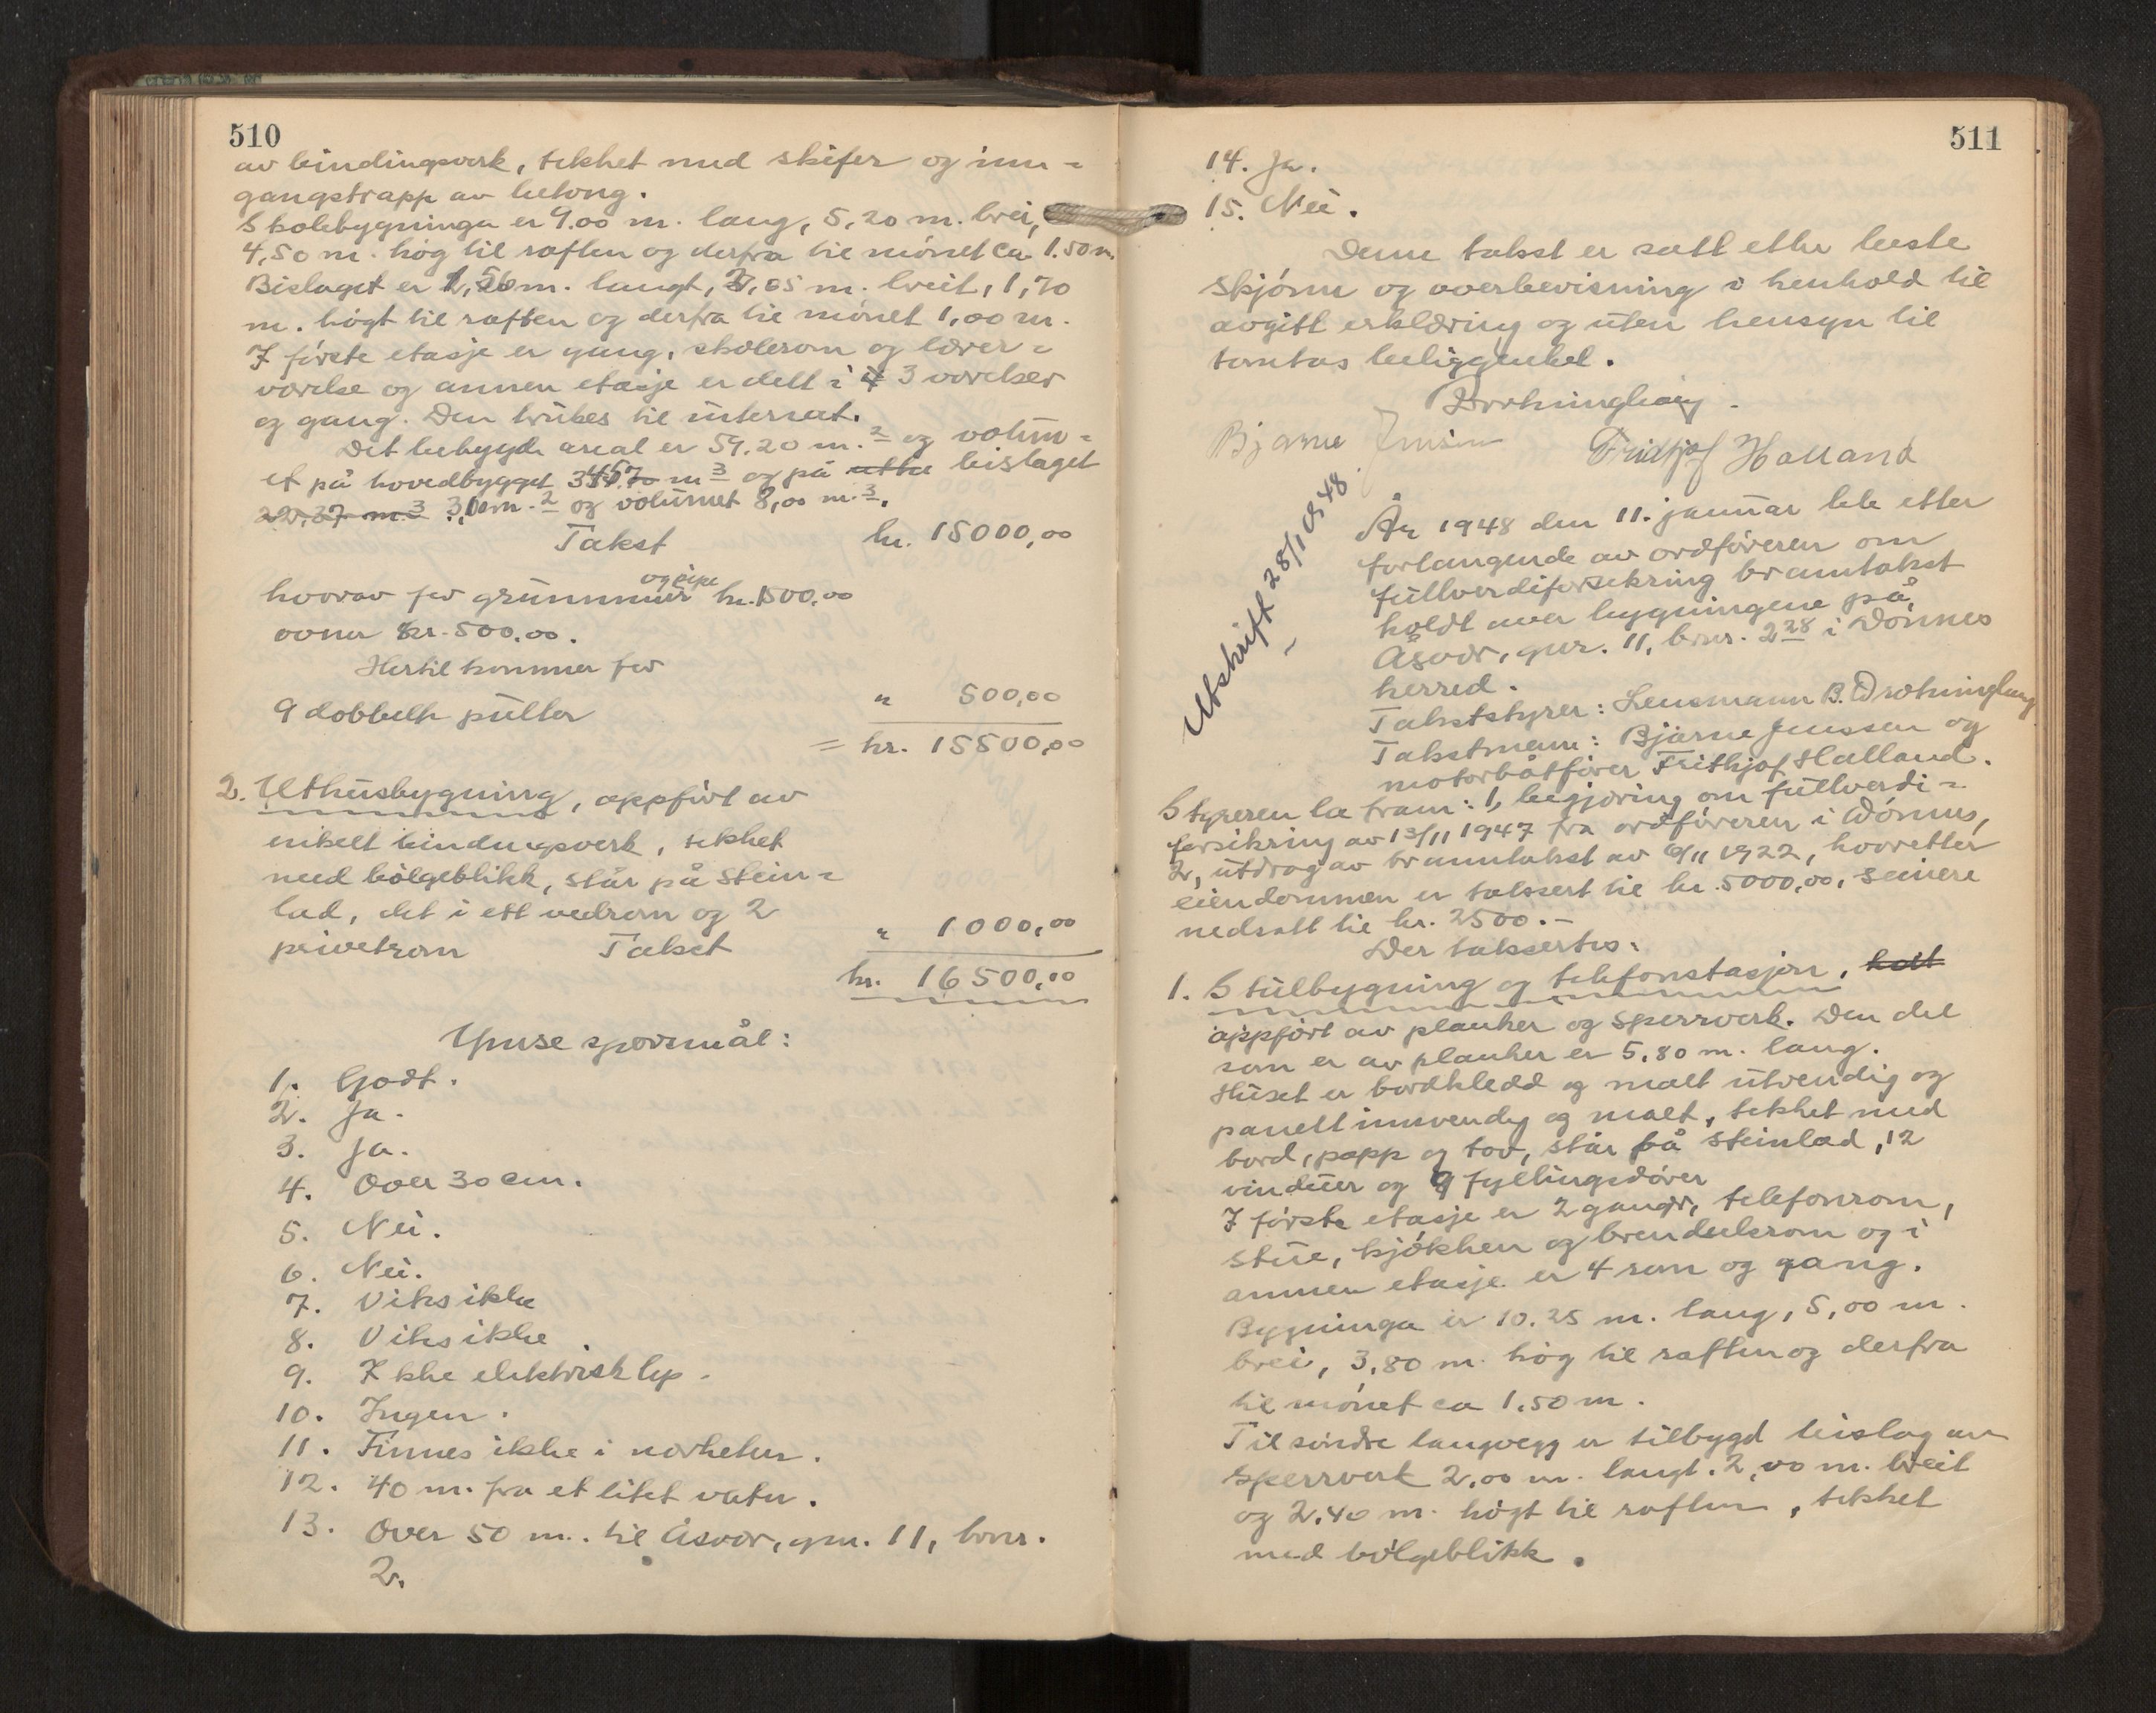 510
av bindingsverk, tekket med skifer og inn-
gangstrapp av betong.
Skolebygninga er 9.00 m. lang, 5,20 m. brei,
4,50 m. høg til raften og derfra til mønet ca 1.50 m.
Bislaget er 1,50 m. langt, 2,05 m. breit, 1,70
m. høgt til raften og derfra til mønet 1,00 m.
I første etasje er gang, skolerom og lærer-
værelse og annen etasje er delt i 3 værelser
og gang. Den brukes til internat.
Det bebygde areal er 59.20 m.2 og volum-
et på hovedbygget m3 og på bislaget
22,37 m.3 3,00 m.2 og volumet 8,00 m.3.
Takst kr. 15000,00
hvorav for grunnmur og pipe kr. 1500,00
ovner kr. 500,00.
Hertil kommer for
9 dobbelte pulter " 500,00
= kr. 15500,00
2. Uthusbygning, oppført av
enkelt bindingsverk, tekket
med bølgeblikk, står på stein-
lad, delt i ett vedrom og 2
privetrom Takst " 1000,00
kr. 16500,00
Ymse spørsmål:
1. Godt.
2. Ja.
3. Ja.
4. Over 30 cm.
5. Nei.
6. Nei.
7. Vites ikke
8. Vites ikke
9. Ikke elektrisk lys.
10. Ingen.
11. Finnes ikke i nærheten.
12. 40 m. fra et litet vatn.
13. Over 50 m. til Åsvær, gnr. 11, bnr.
2.
511
14. Ja.
15. Nei.
Denne takst er satt etter beste
skjønn og overbevisning i henhold til
avgitt erklæring og uten hensyn til
tomtas beliggenhet.
Drothninghaug.
Bjarne Jenssen Fridtjof Halland
Utskrift 28/1 1948
År 1948 den 11. januar ble etter
forlangende av ordføreren om
fullverdiforsikring branntakst
holdt over bygningene på
Åsvær, gnr. 11, bnr. 2 28 i Dønnes
herred.
Takststyrer: Lensmann B. Drothninghaug
Takstmenn: Bjarne Jenssen og
motorbåtfører Frithjof Halland.
Styreren la fram: 1, begjæring om fullverdi-
forsikring av 13/11 1947 fra ordføreren i Dønnes,
2, utdrag av branntakst av 6/11 1922, hvoretter
eiendommen er taksert til kr. 5000,00, seinere
nedsatt til kr. 2500.-
Der taksertes:
1. Stuebygning og telefonstasjon, holt
oppført av planker og sperrverk. Den del
som er av planker er 5,80 m. lang.
Huset er bordkledd og malt utvendig og
panelt innvendig og malt, tekket med
bord, papp og tov, står på steinlad, 12
vinduer og 9 fyllingsdører
I første etasje er 2 ganger, telefonrom,
stue, kjøkken og brenselsrom og i
annen etasje er 4 rom og gang.
Bygninga er 10.25 m. lang, 5,00 m.
brei, 3,80 m. høg til raften og derfra
til mønet ca 1,50 m.
Til søndre langvegg er tilbygd bislag av
sperrverk 2,00 m. langt, 2,00 m. breit
og 2,40 m. høgt til raften, tekket
med bølgeblikk.